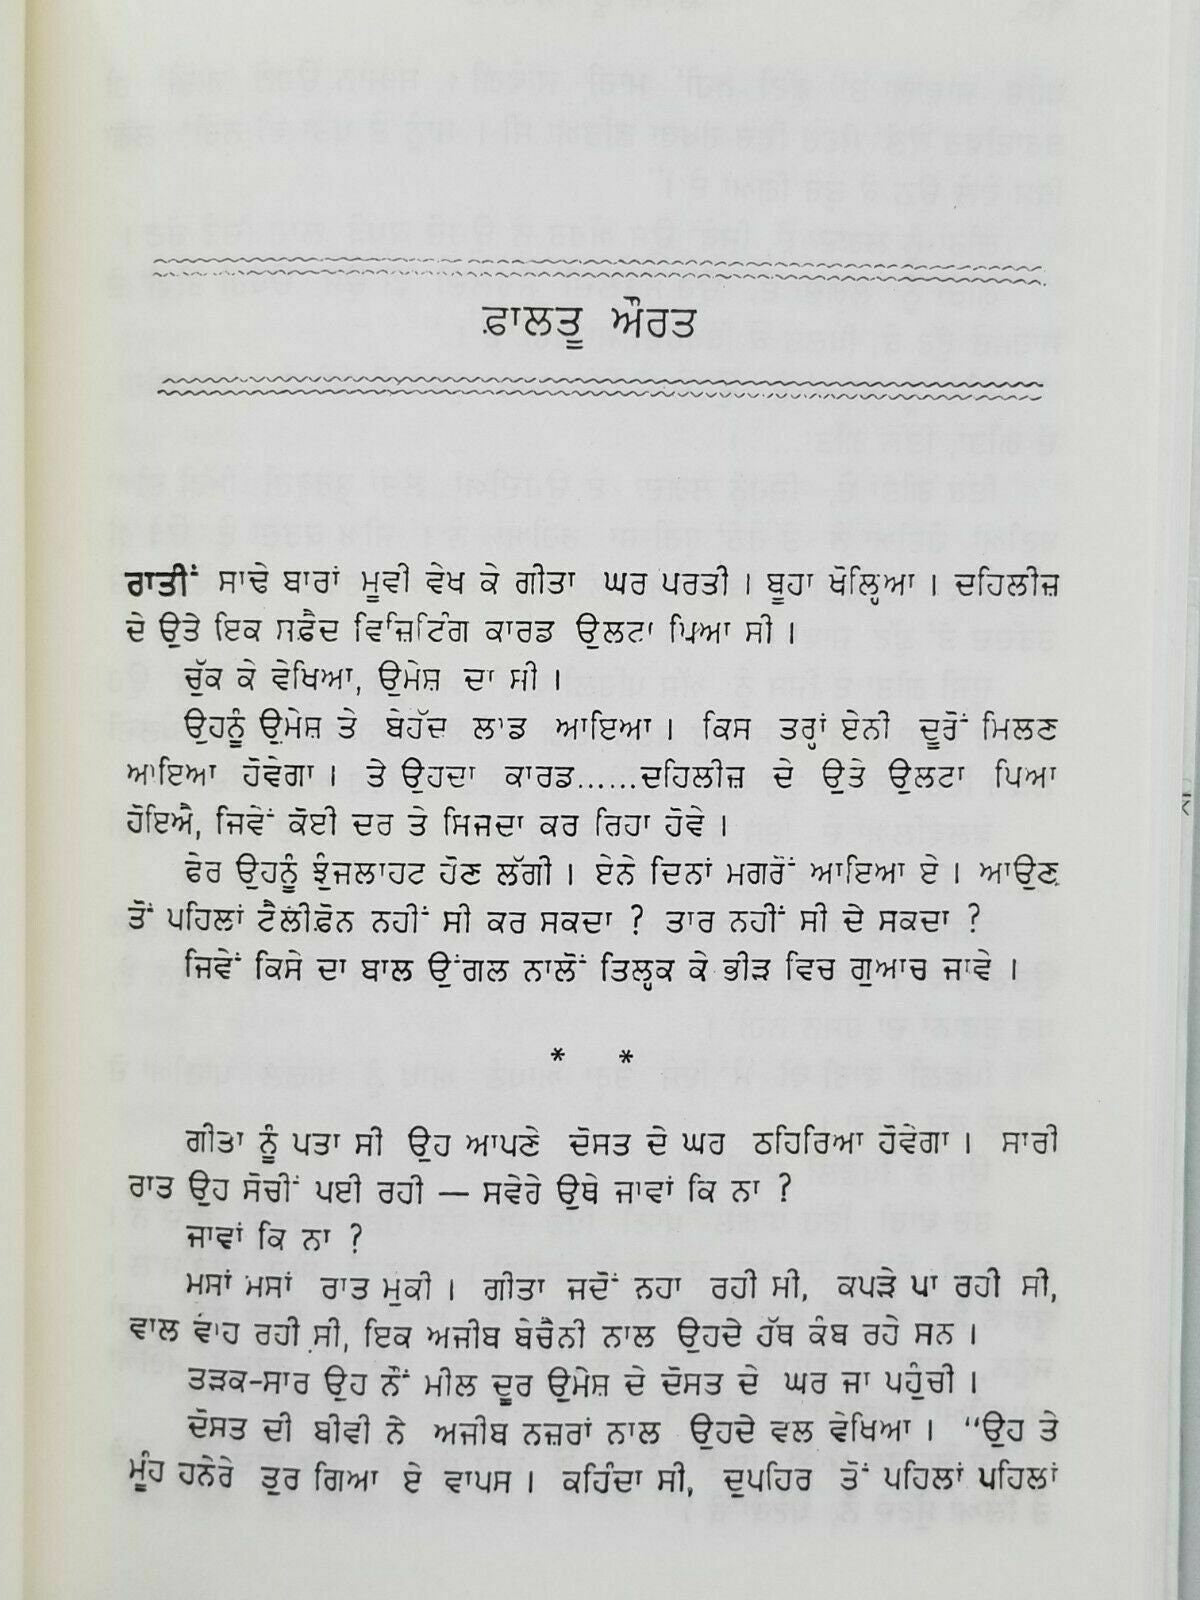 ਫ਼ਾਲਤੂ ਔਰਤ
ਰਾਤੀਂ ਸਾਢੇ ਬਾਰਾਂ ਮੂਵੀ ਵੇਖ ਕੇ ਗੀਤਾ ਘਰ ਪਰਤੀ । ਬੂਹਾ ਖੋਲ੍ਹਿਆ । ਦਹਿਲੀਜ਼
ਦੇ ਉਤੇ ਇਕ ਸਫ਼ੈਦ ਵਿਜ਼ਿਟਿੰਗ ਕਾਰਡ ਉਲਟਾ ਪਿਆ ਸੀ ।
ਚੁੱਕ ਕੇ ਵੇਖਿਆ, ਉਮੇਸ਼ ਦਾ ਸੀ ।
ਉਹਨੂੰ ਉਮੇਸ਼ ਤੇ ਬੇਹੱਦ ਲਾਡ ਆਇਆ । ਕਿਸ ਤਰ੍ਹਾਂ ਏਨੀ ਦੂਰੋਂ ਮਿਲਣ
ਆਇਆ ਹੋਵੇਗਾ । ਤੇ ਉਹਦਾ ਕਾਰਡ......ਦਹਿਲੀਜ਼ ਦੇ ਉਤੇ ਉਲਟਾ ਪਿਆ
ਹੋਇਐ, ਜਿਵੇਂ ਕੋਈ ਦਰ ਤੇ ਸਿਜਦਾ ਕਰ ਰਿਹਾ ਹੋਵੇ ।
ਫੇਰ ਉਹਨੂੰ ਝੁੰਜਲਾਹਟ ਹੋਣ ਲੱਗੀ । ਏਨੇ ਦਿਨਾਂ ਮਗਰੋਂ ਆਇਆ ਏ । ਆਉਣ
ਤੋਂ ਪਹਿਲਾਂ ਟੈਲੀਫ਼ੋਨ ਨਹੀਂ ਸੀ ਕਰ ਸਕਦਾ ? ਤਾਰ ਨਹੀਂ ਸੀ ਦੇ ਸਕਦਾ ?
ਜਿਵੇਂ ਕਿਸੇ ਦਾ ਬਾਲ ਉਂਗਲ ਨਾਲੋਂ ਤਿਲ੍ਹਕ ਕੇ ਭੀੜ ਵਿਚ ਗੁਆਚ ਜਾਵੇ ।
* *
ਗੀਤਾ ਨੂੰ ਪਤਾ ਸੀ ਉਹ ਆਪਣੇ ਦੋਸਤ ਦੇ ਘਰ ਠਹਿਰਿਆ ਹੋਵੇਗਾ । ਸਾਰੀ
ਰਾਤ ਉਹ ਸੋਚੀਂ ਪਈ ਰਹੀ — ਸਵੇਰੇ ਉਥੇ ਜਾਵਾਂ ਕਿ ਨਾ ?
ਜਾਵਾਂ ਕਿ ਨਾ ?
ਮਸਾਂ ਮਸਾਂ ਰਾਤ ਮੁਕੀ । ਗੀਤਾ ਜਦੋਂ ਨਹਾ ਰਹੀ ਸੀ, ਕਪੜੇ ਪਾ ਰਹੀ ਸੀ,
ਵਾਲ ਵਾਹ ਰਹੀ ਸੀ, ਇਕ ਅਜੀਬ ਬੇਚੈਨੀ ਨਾਲ ਉਹਦੇ ਹੱਥ ਕੰਬ ਰਹੇ ਸਨ ।
ਤੜਕ-ਸਾਰ ਉਹ ਨੌਂ ਮੀਲ ਦੂਰ ਉਮੇਸ਼ ਦੇ ਦੋਸਤ ਦੇ ਘਰ ਜਾ ਪਹੁੰਚੀ ।
ਦੋਸਤ ਦੀ ਬੀਵੀ ਨੇ ਅਜੀਬ ਨਜ਼ਰਾਂ ਨਾਲ ਉਹਦੇ ਵਲ ਵੇਖਿਆ । “ਉਹ ਤੇ
ਮੂੰਹ ਹਨੇਰੇ ਤੁਰ ਗਿਆ ਏ ਵਾਪਸ । ਕਹਿੰਦਾ ਸੀ, ਦੁਪਹਿਰ ਤੋਂ ਪਹਿਲਾਂ ਪਹਿਲਾਂ